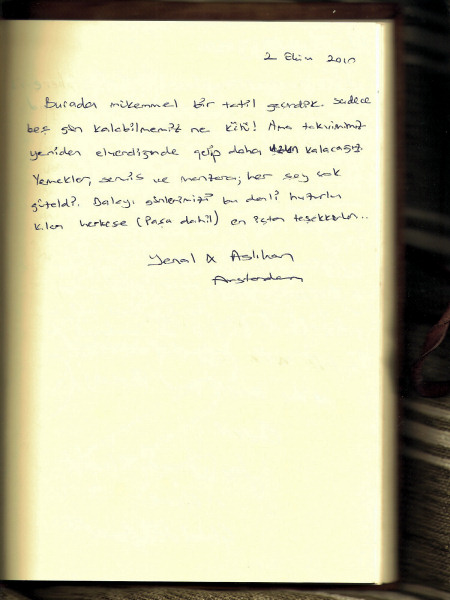 2 Ekim 2010
Burada mükemmel bir tatil geçirdik. Sadece
beş gün kalabilmemiz ne kötü! Ama takvimimiz
yeniden elverdiğinde gelip daha uzun kalacağız.
Yemekler, servis ve manzara; her şey çok
güzeldi. Dolayı günlerimizi bu denli huzurlu
kılan herkese (Paşa dahil) en içten teşekkürler..
Yenal & Aslıhan
Amsterdam